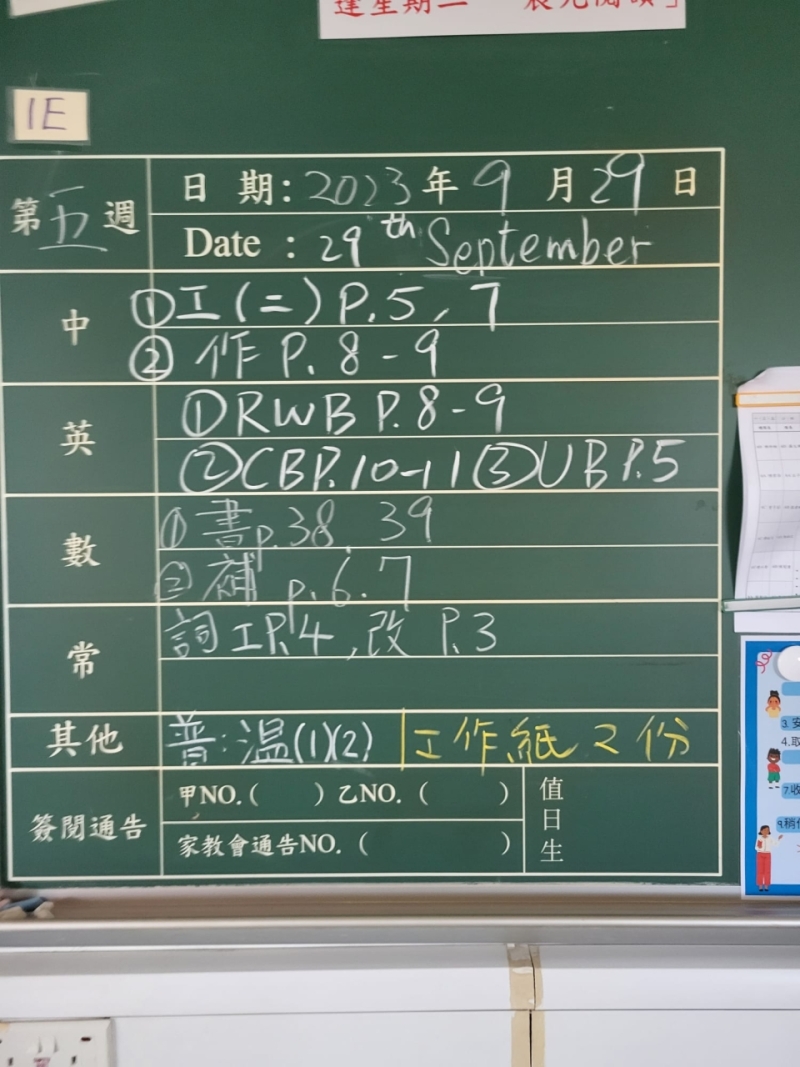 1E
第五週
日 期：2023年9月29日
Date : 29th September
中
①工(二)P.5,7
②作P.8-9
英
①RWB P.8-9
②CBP.10-11③UBP.5
數
①書p.38,39
②補 p.6.7
常
詞工P.4,改 P.3
其他
普:溫(1)(2) 工作紙2份
簽閱通告
甲NO.( ) 乙NO.( )
家教會通告NO.( )
值日生
3.安
4.取
7.收
9.稍